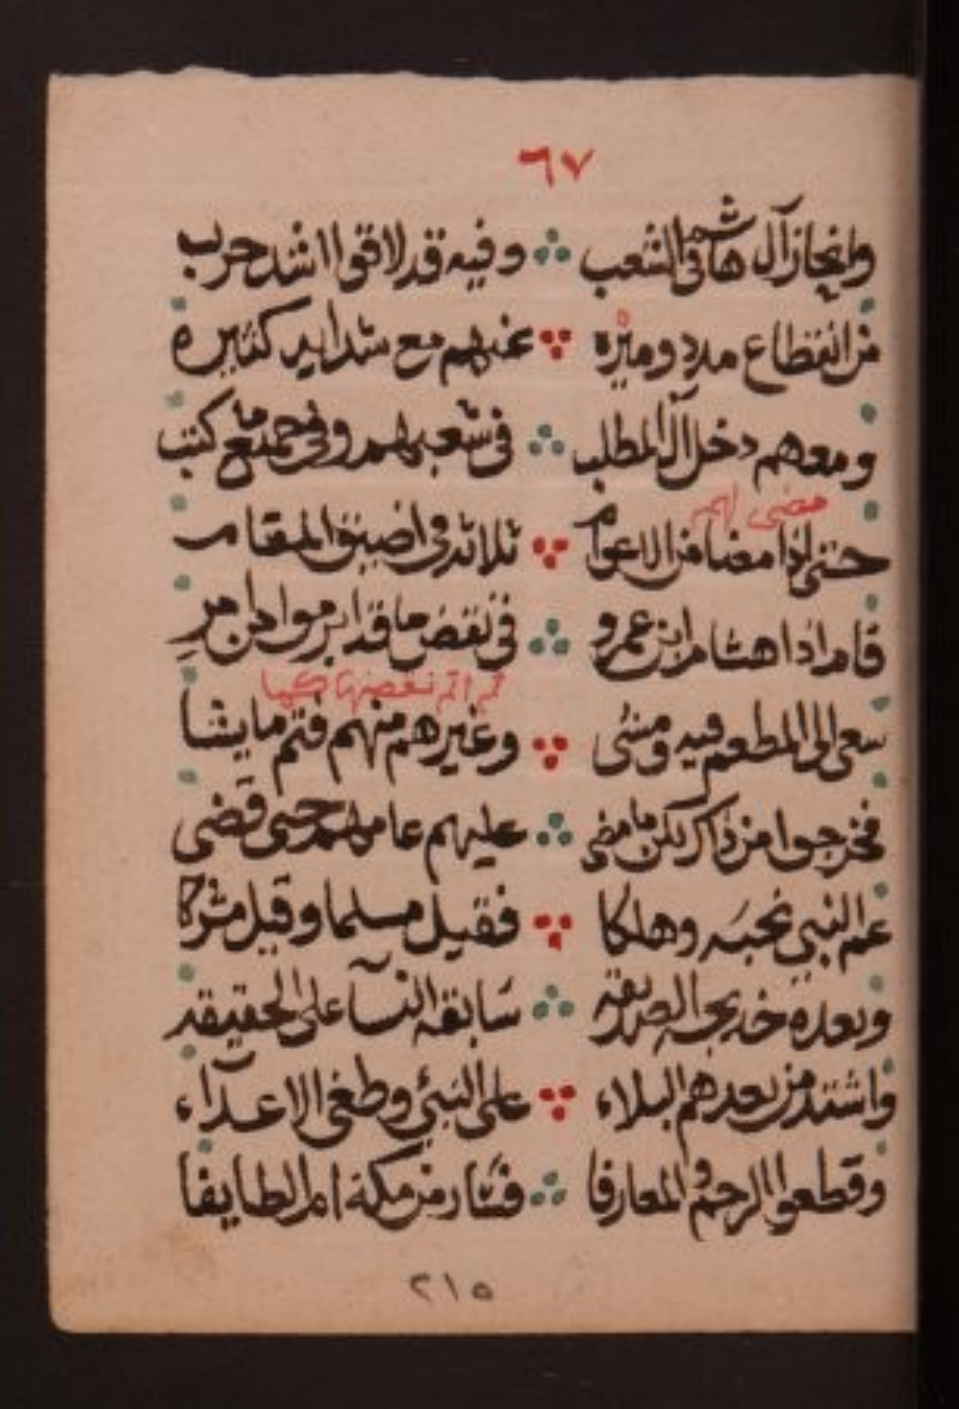 ٦٧
وانحاز آل هاشم في الشعب وفيه قد لاقوا اشد حرب
من انقطاع مدد وميرة عنهم مع شدايد كثيره
ومعهم دخل آل المطلب في شعبهم وفي جميع ما كتب
مضى لهم
حتى اذا مضا من الاعوام ثلاثة في اضيق المقام
قام اذا هشام ابن عمرو في نقض ما قد ابرموا من امرِ
ثم اتم نقضها كما
سعى الى المطعم فيه ومشى وغيرهم منهم فتم ما يشا
فخرجوا من ذاك لكن ما مضى عليهم عامهم حتى قضى
عم النبي نحبَه وهلكا فقيل مسلما وقيل مشركا
وبعده خديجة الصديقة سَابقة النسآ على الحقيقه
واشتد من بعدهم البلاء على النبي وطغى الاعدآء
وقطعوا الرحم والمعارفا فسَار من مكة ام الطايفا
٢١٥